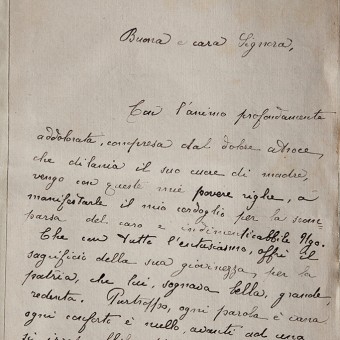 Buona e cara Signora,
Con l'animo profondamente
addolorata, compresa dal dolore atroce,
che dilania il suo cuore di madre,
vengo con queste mie povere righe, a
manifestarle il mio cordoglio per la scom-
parsa del caro e indimenticabbile Ugo.
Che con tutto l'entusiasmo, offrì il
sagrificio della sua giovinezza, per la
patria, che lui, sognava bella, grande,
redenta. Purtroppo, ogni parola è vana
ogni conforto è nullo, avanti ad una